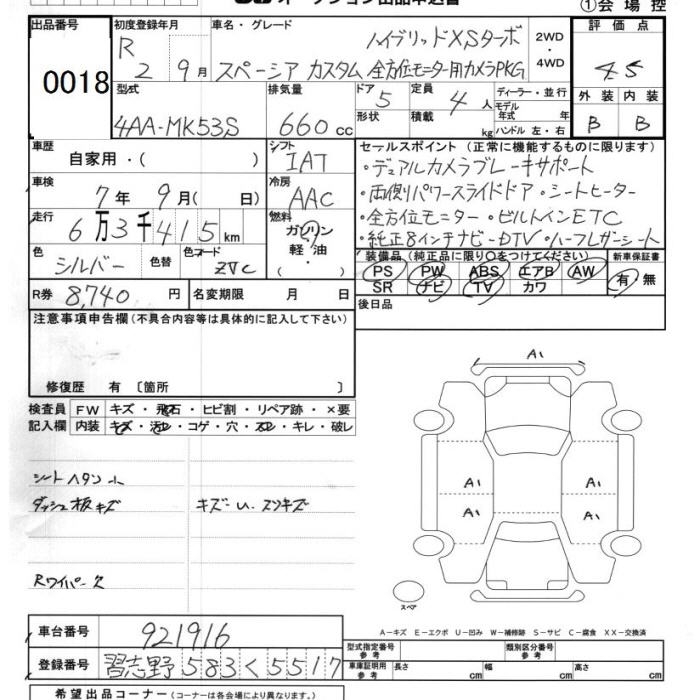 ①会場控
出品番号 初度登録年月 車名・グレード 評価点
0018
R 2 9月 ハイブリッドXSターボ 2WD・4WD
スペーシア カスタム 全方位モニター用カメラPKG 4.5
型式 排気量 ドア 5 定員 4人 ディーラー・並行 外装 内装
モデル年式 年
4AA-MK53S 660cc 形状 積載 kg ハンドル 左・右 B B
車歴 自家用・( ) シフト IAT セールスポイント (正常に機能するものに限ります)
・デュアルカメラブレーキサポート
車検 7年 9月( 日) 冷房 AAC ・両側パワースライドドア・シートヒーター
走行 6万3千415km 燃料 ガソリン・軽油・( ) ・全方位モニター・ビルトインETC
・純正8インチナビ-DTV・ハーフレザーシート
色 シルバー 色替 色コード ZVC
装備品 (純正品に限り○をつけてください) 新車保証書
PS PW ABS エアB AW 有・無
SR ナビ TV カワ
R券 8,740円 名変期限 月 日 後日品
注意事項申告欄 (不具合内容等は具体的に記入して下さい)
修復歴 有 〔箇所 〕
検査員 FW キズ・飛石・ヒビ割・リペア跡・×要
記入欄 内装 キズ・汚れ・コゲ・穴・スレ・キレ・破レ
ダッシュ板キズ
Rワイパー欠
A1
A1 A1
A1 A1
スペア
A-キズ E-エクボ U-凹み W-補修跡 S-サビ C-腐食 XX-交換済
車台番号 921916
型式指定番号 参考 類別区分番号 参考
登録番号 習志野583く5517
車庫証明用 参考 長さ cm 幅 cm 高さ cm
希望出品コーナー (コーナーは各会場により異なります。)